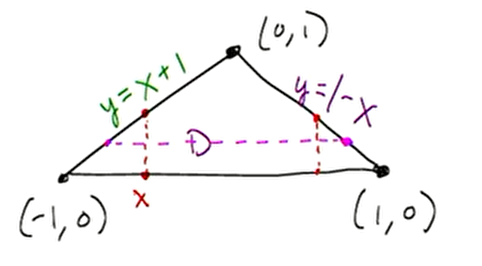 (0,1)
y=x+1
y=1-x
D
x
(-1,0)
(1,0)